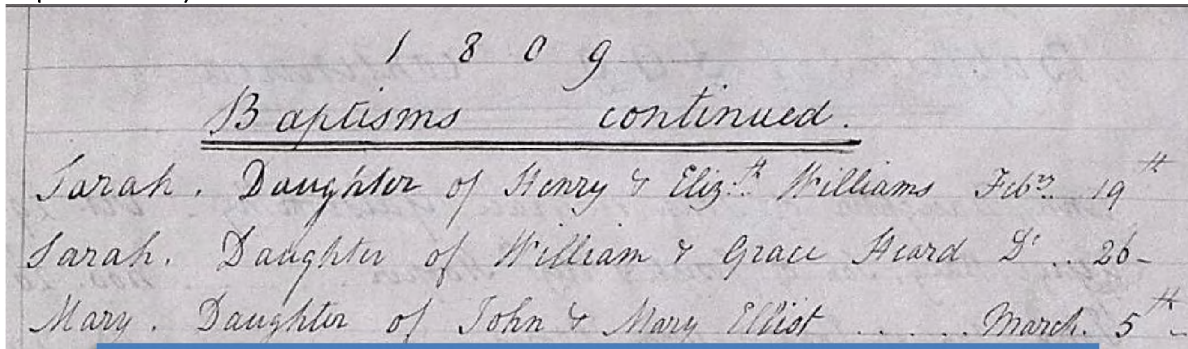 1809
Baptisms continued.
Sarah. Daughter of Henry & Eliz.th Williams Feby. 19th
Sarah. Daughter of William & Grace Heard Do .. 26-
Mary. Daughter of John & Mary Elliot ..... March. 5th-